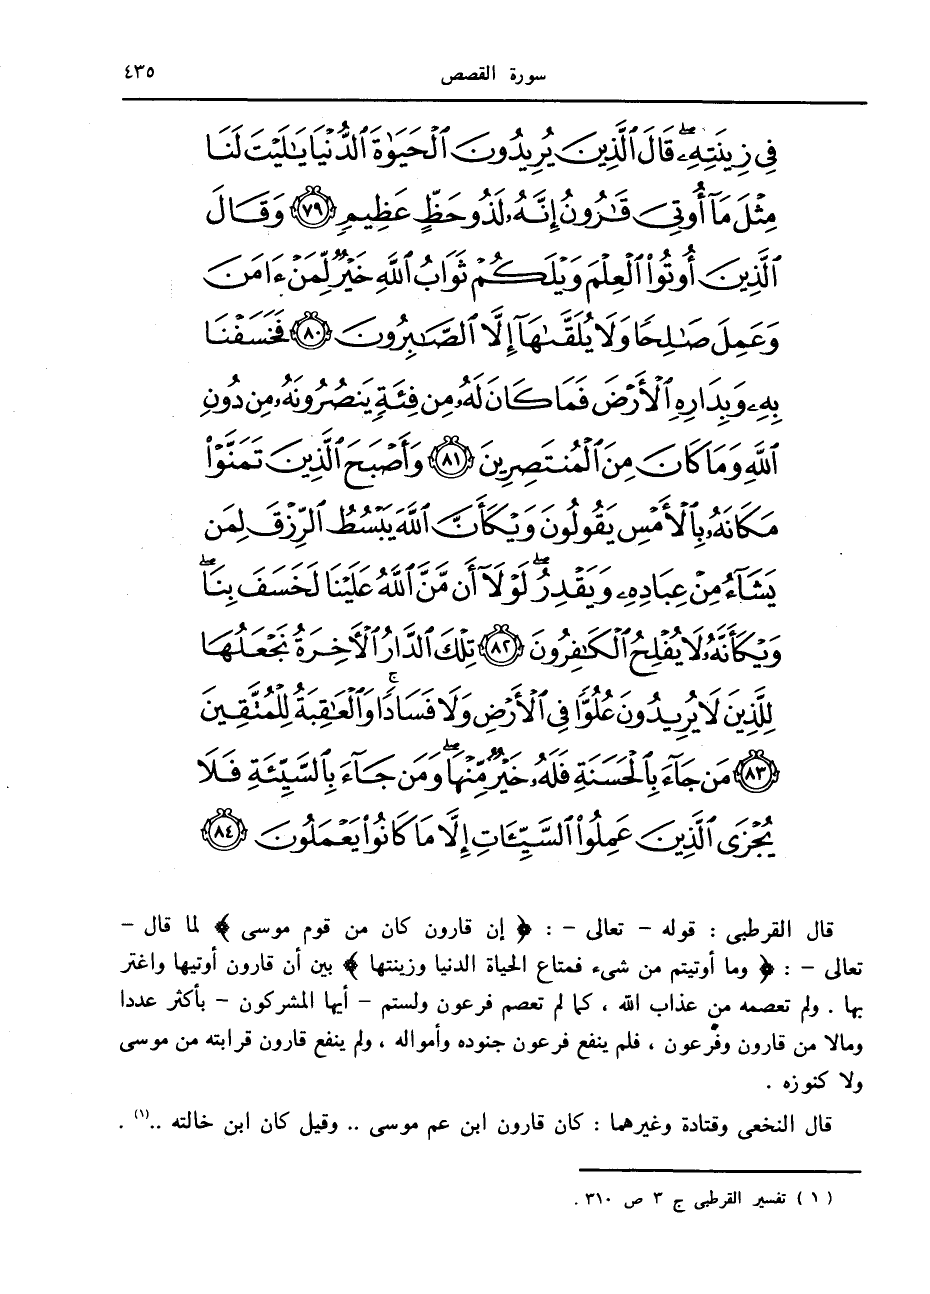 سورة القصص ٤٣٥
فِى زِينَتِهِۦۖ قَالَ ٱلَّذِينَ يُرِيدُونَ ٱلْحَيَوٰةَ ٱلدُّنْيَا يَٰلَيْتَ لَنَا
مِثْلَ مَآ أُوتِىَ قَٰرُونُ إِنَّهُۥ لَذُو حَظٍّ عَظِيمٍ ﴿٧٩﴾ وَقَالَ
ٱلَّذِينَ أُوتُوا۟ ٱلْعِلْمَ وَيْلَكُمْ ثَوَابُ ٱللَّهِ خَيْرٌ لِّمَنْ ءَامَنَ
وَعَمِلَ صَٰلِحًا وَلَا يُلَقَّىٰهَآ إِلَّا ٱلصَّٰبِرُونَ ﴿٨٠﴾ فَخَسَفْنَا
بِهِۦ وَبِدَارِهِ ٱلْأَرْضَ فَمَا كَانَ لَهُۥ مِن فِئَةٍ يَنصُرُونَهُۥ مِن دُونِ
ٱللَّهِ وَمَا كَانَ مِنَ ٱلْمُنتَصِرِينَ ﴿٨١﴾ وَأَصْبَحَ ٱلَّذِينَ تَمَنَّوْا۟
مَكَانَهُۥ بِٱلْأَمْسِ يَقُولُونَ وَيْكَأَنَّ ٱللَّهَ يَبْسُطُ ٱلرِّزْقَ لِمَن
يَشَآءُ مِنْ عِبَادِهِۦ وَيَقْدِرُۖ لَوْلَآ أَن مَّنَّ ٱللَّهُ عَلَيْنَا لَخَسَفَ بِنَاۖ
وَيْكَأَنَّهُۥ لَا يُفْلِحُ ٱلْكَٰفِرُونَ ﴿٨٢﴾ تِلْكَ ٱلدَّارُ ٱلْأَخِرَةُ نَجْعَلُهَا
لِلَّذِينَ لَا يُرِيدُونَ عُلُوًّا فِى ٱلْأَرْضِ وَلَا فَسَادًاۚ وَٱلْعَٰقِبَةُ لِلْمُتَّقِينَ
﴿٨٣﴾ مَن جَآءَ بِٱلْحَسَنَةِ فَلَهُۥ خَيْرٌ مِّنْهَاۖ وَمَن جَآءَ بِٱلسَّيِّئَةِ فَلَا
يُجْزَى ٱلَّذِينَ عَمِلُوا۟ ٱلسَّيِّـَٔاتِ إِلَّا مَا كَانُوا۟ يَعْمَلُونَ ﴿٨٤﴾
قال القرطبى : قوله – تعالى – : ﴿ إن قارون كان من قوم موسى ﴾ لما قال –
تعالى – : ﴿ وما أوتيتم من شىء فمتاع الحياة الدنيا وزينتها ﴾ بين أن قارون أوتيها واغتر
بها . ولم تعصمه من عذاب الله ، كما لم تعصم فرعون ولستم – أيها المشركون – بأكثر عددا
ومالا من قارون وفرعون ، فلم ينفع فرعون جنوده وأمواله ، ولم ينفع قارون قرابته من موسى
ولا كنوزه .
قال النخعى وقتادة وغيرهما : كان قارون ابن عم موسى .. وقيل كان ابن خالته ..(١) .
( ١ ) تفسير القرطبى ج ٣ ص ٣١٠ .